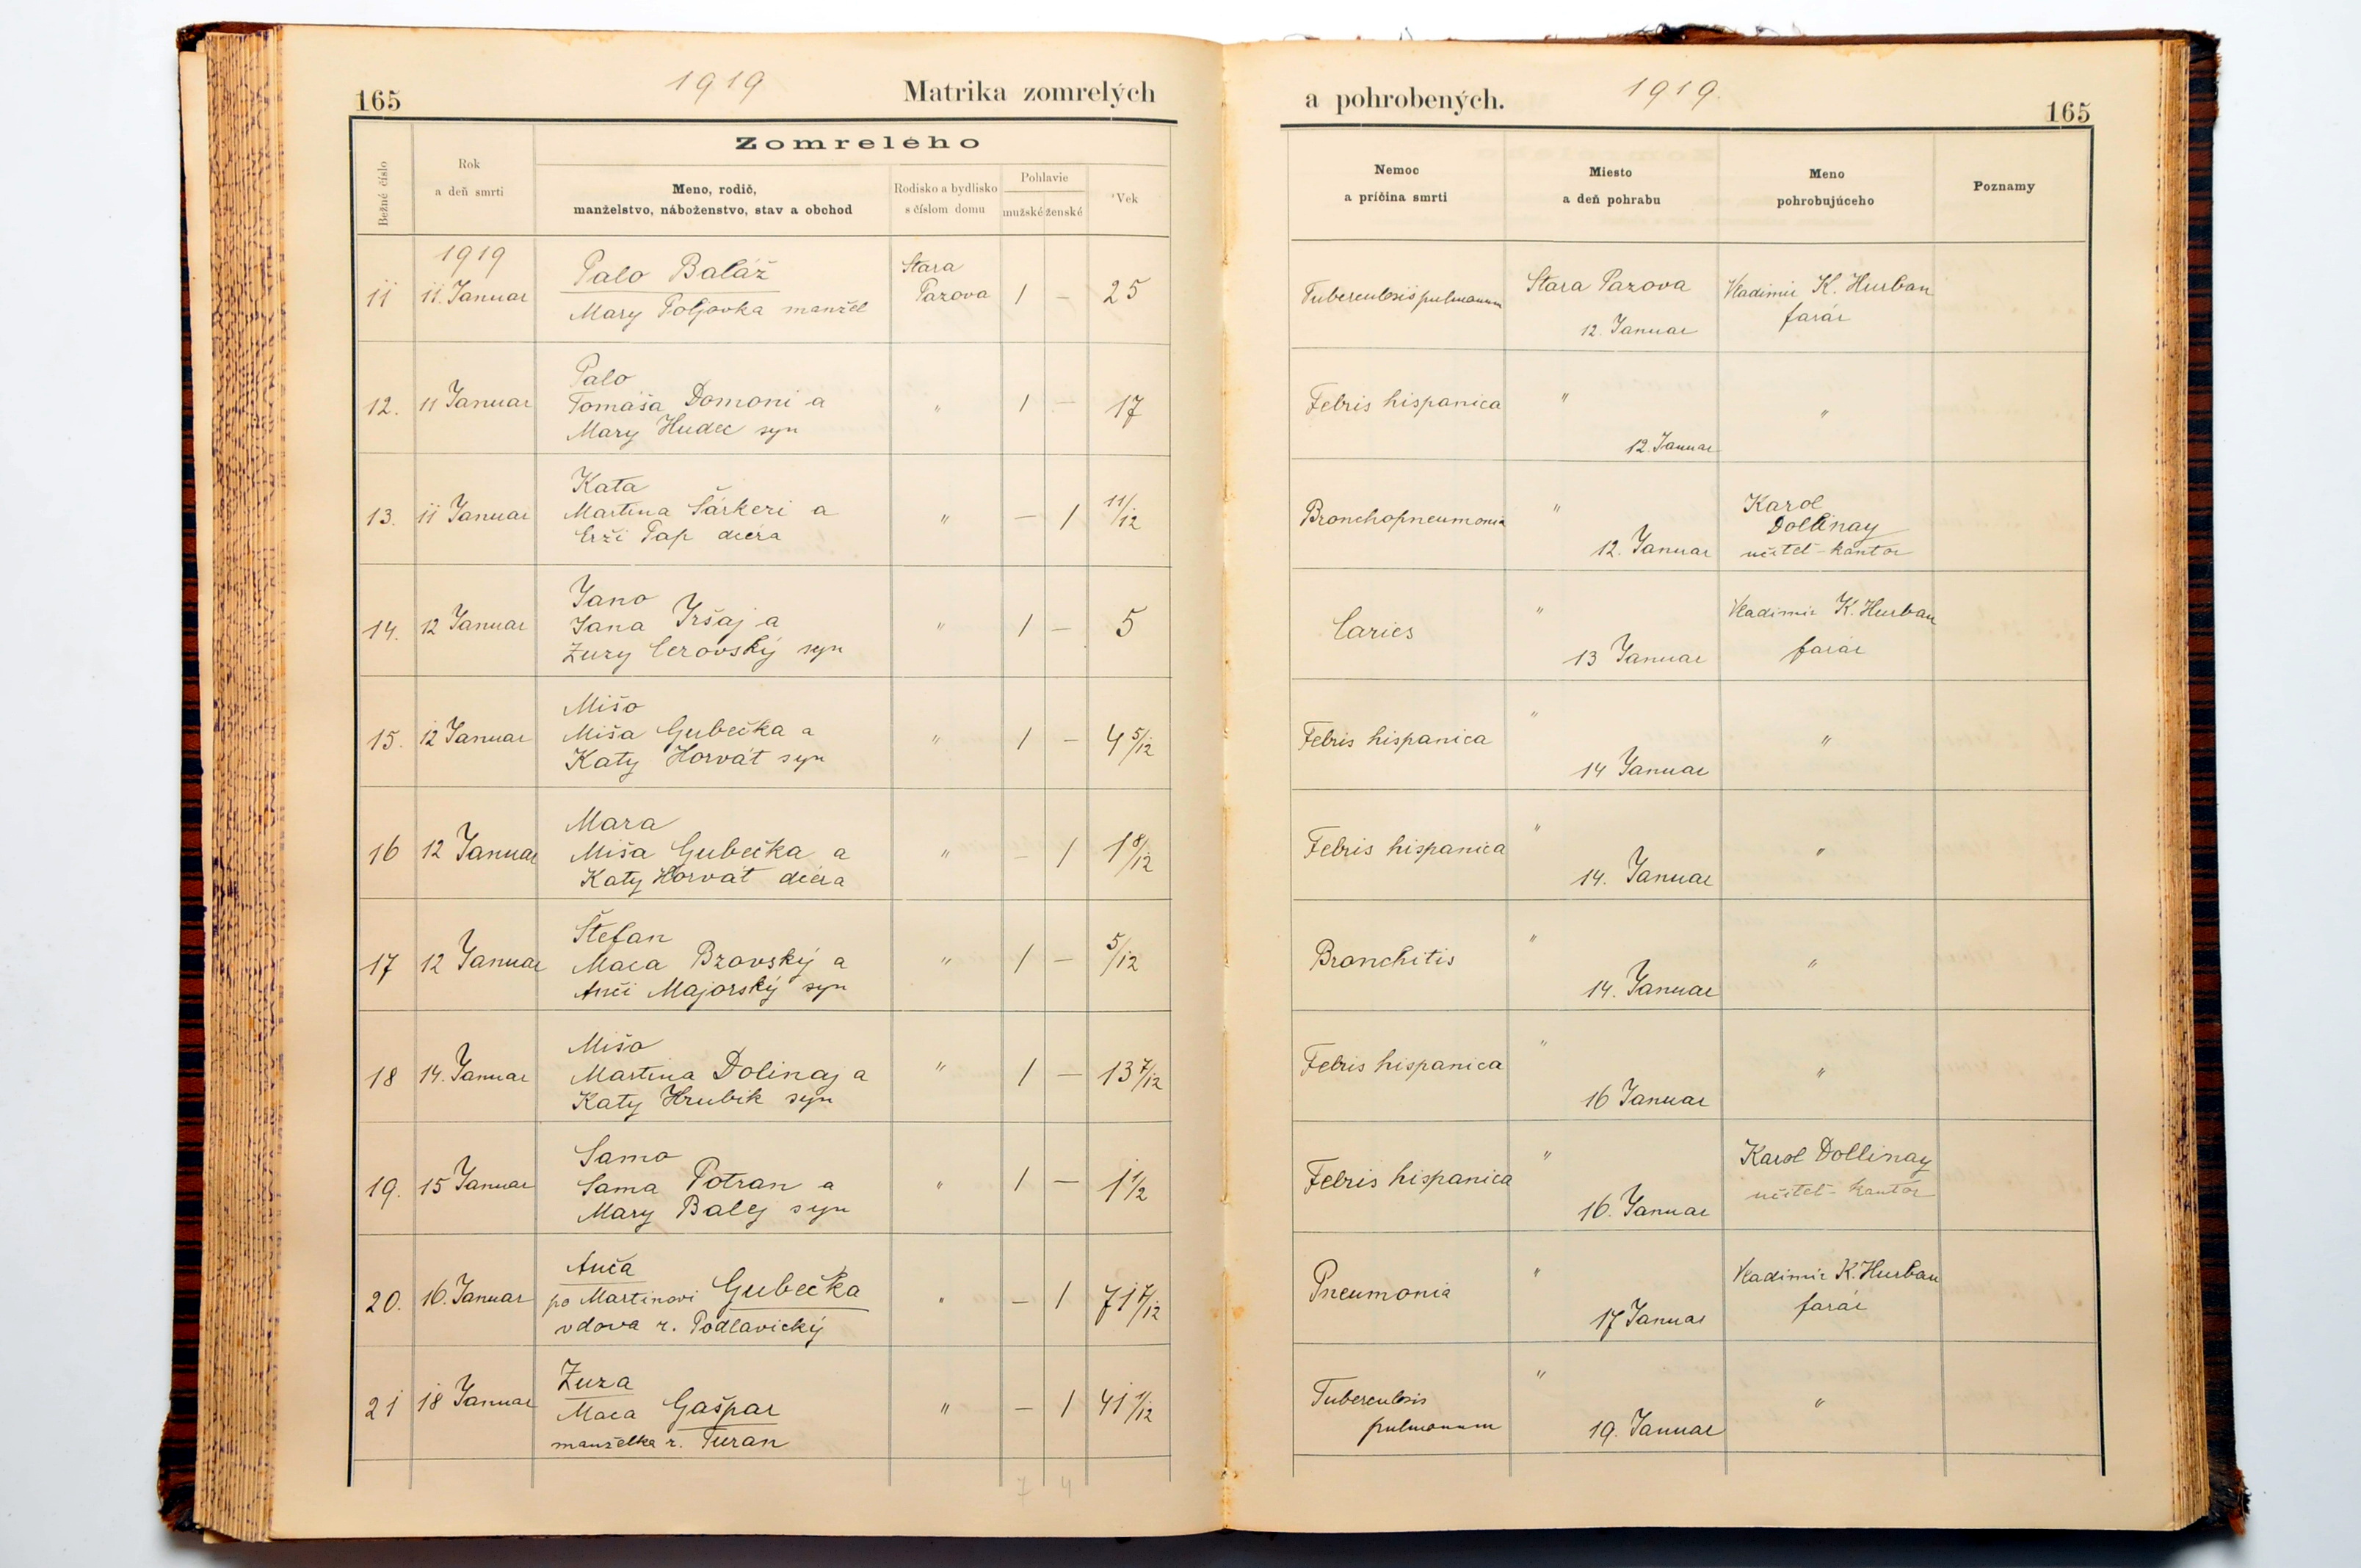 165
1919
Matrika zomrelých
Bežné číslo
Rok
a deň smrti
Zomrelého
Meno, rodič,
manželstvo, náboženstvo, stav a obchod
Rodisko a bydlisko
s číslom domu
Pohlavie
mužské ženské
Vek
1919
11 11. Januar
Palo Baláž
Mary Poljovka manžel
Stara
Pazova
1 – 25
12. 11 Januar
Palo
Tomáša Domoni a
Mary Hudec syn
" 1 – 17
13. 11 Januar
Kata
Martina Šárkeri a
Erži Pap dcéra
" – 1 11/12
14. 12 Januar
Jano
Jana Iršaj a
Zuzy Cerovský syn
" 1 – 5
15. 12 Januar
Mišo
Miša Gubečka a
Katy Horvát syn
" 1 – 4 5/12
16 12 Januar
Mara
Miša Gubečka a
Katy Horvát dcéra
" – 1 1 8/12
17 12 Januar
Štefan
Maca Bzovský a
Anči Majorský syn
" 1 – 5/12
18 14. Januar
Mišo
Martina Dolinaj a
Katy Hrubík syn
" 1 – 13 7/12
19. 15 Januar
Samo
Sama Potran a
Mary Balej syn
" 1 – 1 1/2
20. 16. Januar
Anča
po Martinovi Gubečka
vdova r. Podlavický
" – 1 71 7/12
21 18 Januar
Zuza
Maca Gašpar
manželka r. Turan
" – 1 41 1/12
7 4
a pohrobených.
1919.
165
Nemoc
a príčina smrti
Miesto
a deň pohrabu
Meno
pohrobujúceho
Poznamy
Tuberculosis pulmonum
Stara Pazova
12. Januar
Vladimir K. Hurban
farár
Febris hispanica
"
12. Januar
"
Bronchopneumonia
"
12. Januar
Karol
Dollinay
učitel-kantor
Caries
"
13 Januar
Vladimir K. Hurban
farár
Febris hispanica
"
14 Januar
"
Febris hispanica
"
14. Januar
"
Bronchitis
"
14. Januar
"
Febris hispanica
"
16 Januar
"
Febris hispanica
"
16. Januar
Karol Dollinay
učitel-kantor
Pneumonia
"
17 Januar
Vladimir K. Hurban
farár
Tuberculosis
pulmonum
"
19. Januar
"